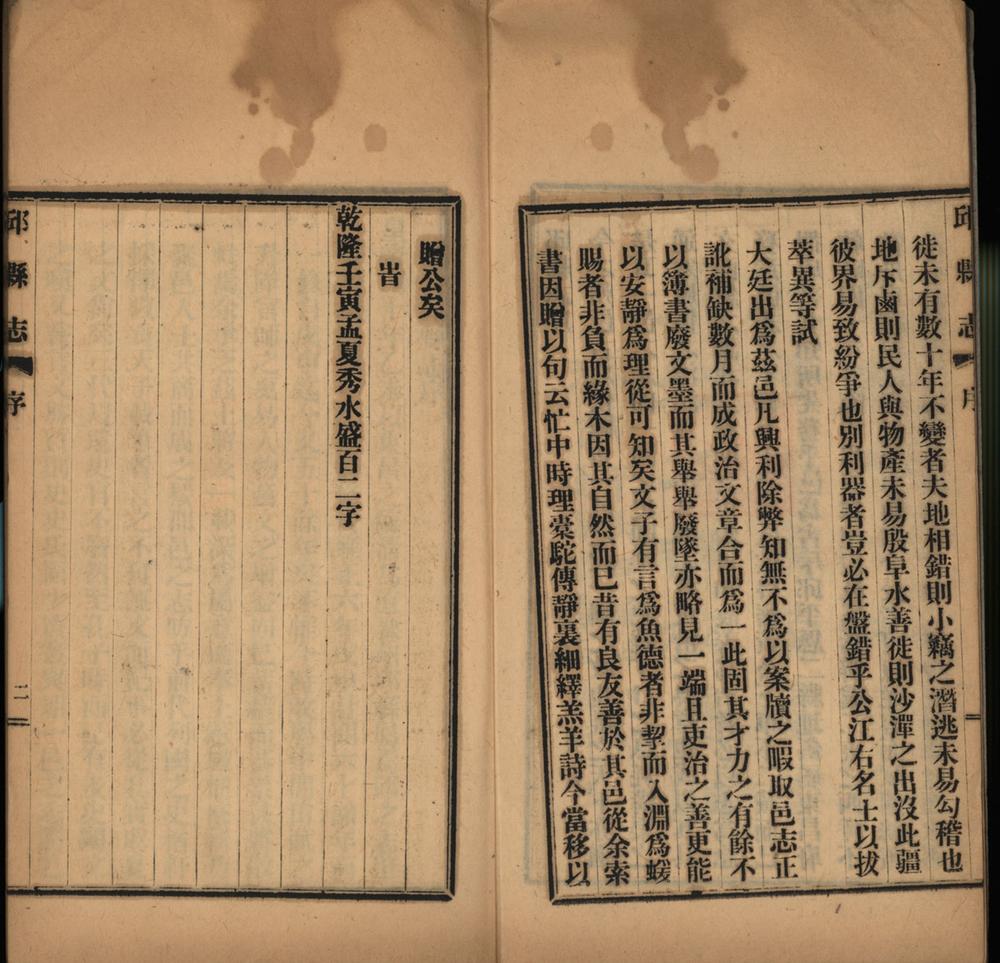 邱縣志 序
徙未有數十年不變者夫地相錯則小竊之潛逃未易勾稽也
地斥鹵則民人與物產未易殷阜水善徙則沙潬之出沒此疆
彼界易致紛爭也別利器者豈必在盤錯乎公江右名士以拔
萃異等試
大廷出爲茲邑凡興利除弊知無不爲以案牘之暇取邑志正
訛補缺數月而成政治文章合而爲一此固其才力之有餘不
以簿書廢文墨而其舉舉廢墜亦略見一端且吏治之善更能
以安靜爲理從可知矣文子有言爲魚德者非挈而入淵爲蝯
賜者非負而緣木因其自然而已昔有良友善於其邑從余索
書因贈以句云忙中時理橐駝傳靜裏細繹羔羊詩今當移以
贈公矣
旹
乾隆壬寅孟夏秀水盛百二字
邱縣志 序 二